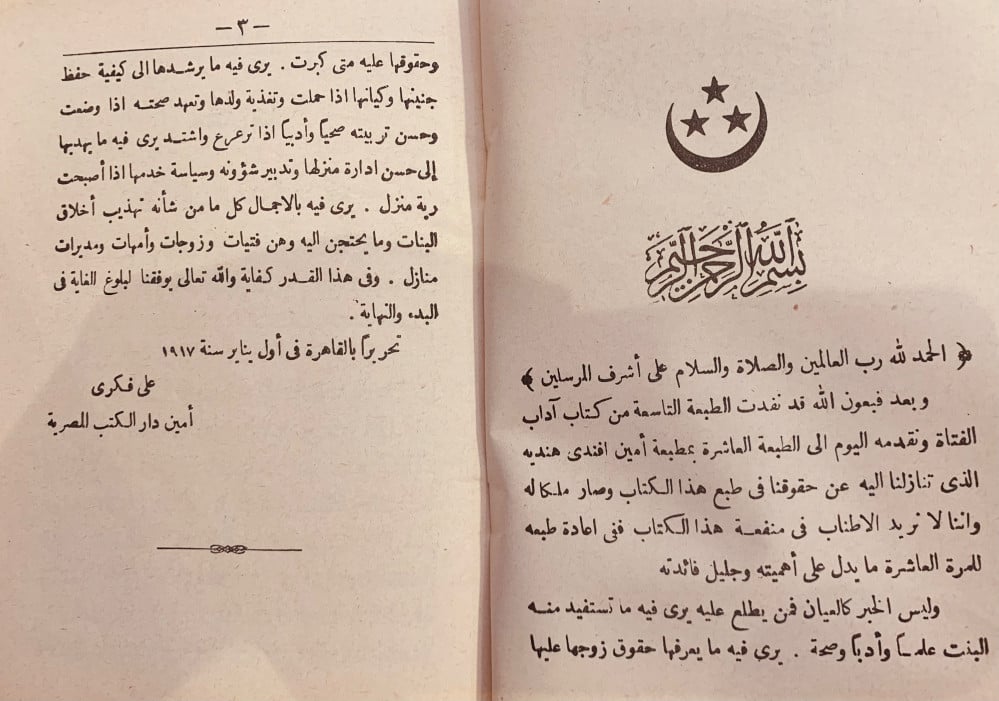 بسم الله الرحمن الرحيم
﴿ الحمد لله رب العالمين والصلاة والسلام على أشرف المرسلين ﴾
وبعد فبعون الله قد نفدت الطبعة التاسعة من كتاب آداب
الفتاة ونقدمه اليوم الى الطبعة العاشرة بمطبعة أمين افندى هنديه
الذى تنازلنا اليه عن حقوقنا فى طبع هذا الكتاب وصار ملكا له
واننا لا نريد الاطناب فى منفعة هذا الكتاب ففى اعادة طبعه
للمرة العاشرة ما يدل على أهميته وجليل فائدته
وليس الخبر كالعيان فمن يطلع عليه يرى فيه ما تستفيد منه
البنت علماً وأدباً وصحة . يرى فيه ما يعرفها حقوق زوجها عليها
— ٣ —
وحقوقها عليه متى كبرت . يرى فيه ما يرشدها الى كيفية حفظ
جنينها وكيانها اذا حملت وتغذية ولدها وتعهد صحته اذا وضعت
وحسن تربيته صحياً وأدبياً اذا ترعرع واشتد يرى فيه ما يهديها
إلى حسن ادارة منزلها وتدبير شؤونه وسياسة خدمها اذا أصبحت
ربة منزل . يرى فيه بالاجمال كل ما من شأنه تهذيب أخلاق
البنات وما يحتجن اليه وهن فتيات وزوجات وأمهات ومديرات
منازل . وفى هذا القدر كفاية والله تعالى يوفقنا لبلوغ الغاية فى
البدء والنهاية .
تحريراً بالقاهرة فى أول يناير سنة ١٩١٧
على فكرى
أمين دار الكتب المصرية